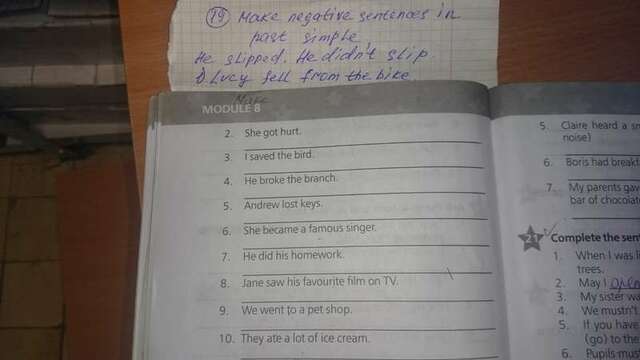 19 Make negative sentences in
past simple
He slipped. He didn't slip
1) Lucy fell from the bike
MODULE 8
2. She got hurt.
3. I saved the bird.
4. He broke the branch.
5. Andrew lost keys.
6. She became a famous singer.
7. He did his homework.
8. Jane saw his favourite film on TV.
9. We went to a pet shop.
10. They ate a lot of ice cream.
5. Claire heard a
noise)
6. Boris had
7. My parents gav
bar of chocolat
21 Complete the sen
1. When I was
trees.
2. May I
3. My sister w
4. We mustn't
5. If you have
(go) to the
6. Pupils mus